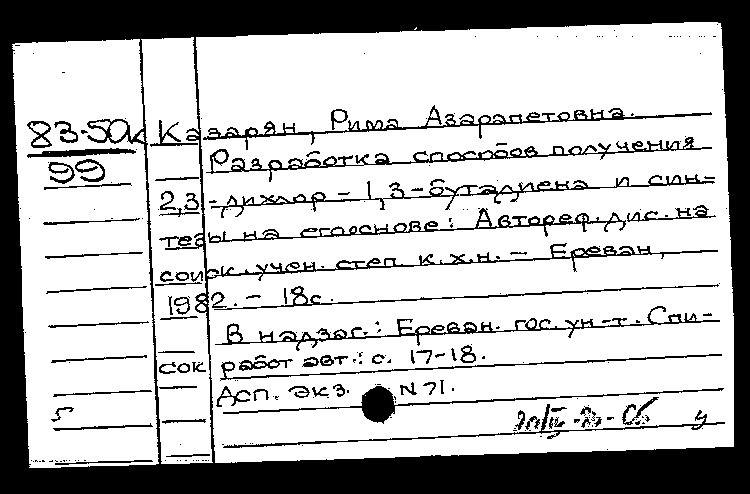 83-50к
99
Казарян, Рима Азарапетовна.
Разработка способов получения
2,3-дихлор-1,3-бутадиена и син-
тезы на его основе: Автореф. дис. на
соиск. учен. степ к.х.н. - Ереван,
1982. - 18с.
В надзаг.: Ереван. гос. ун-т. Спи-
сок работ авт.: с. 17-18.
Асп. экз. N 71.
5
у